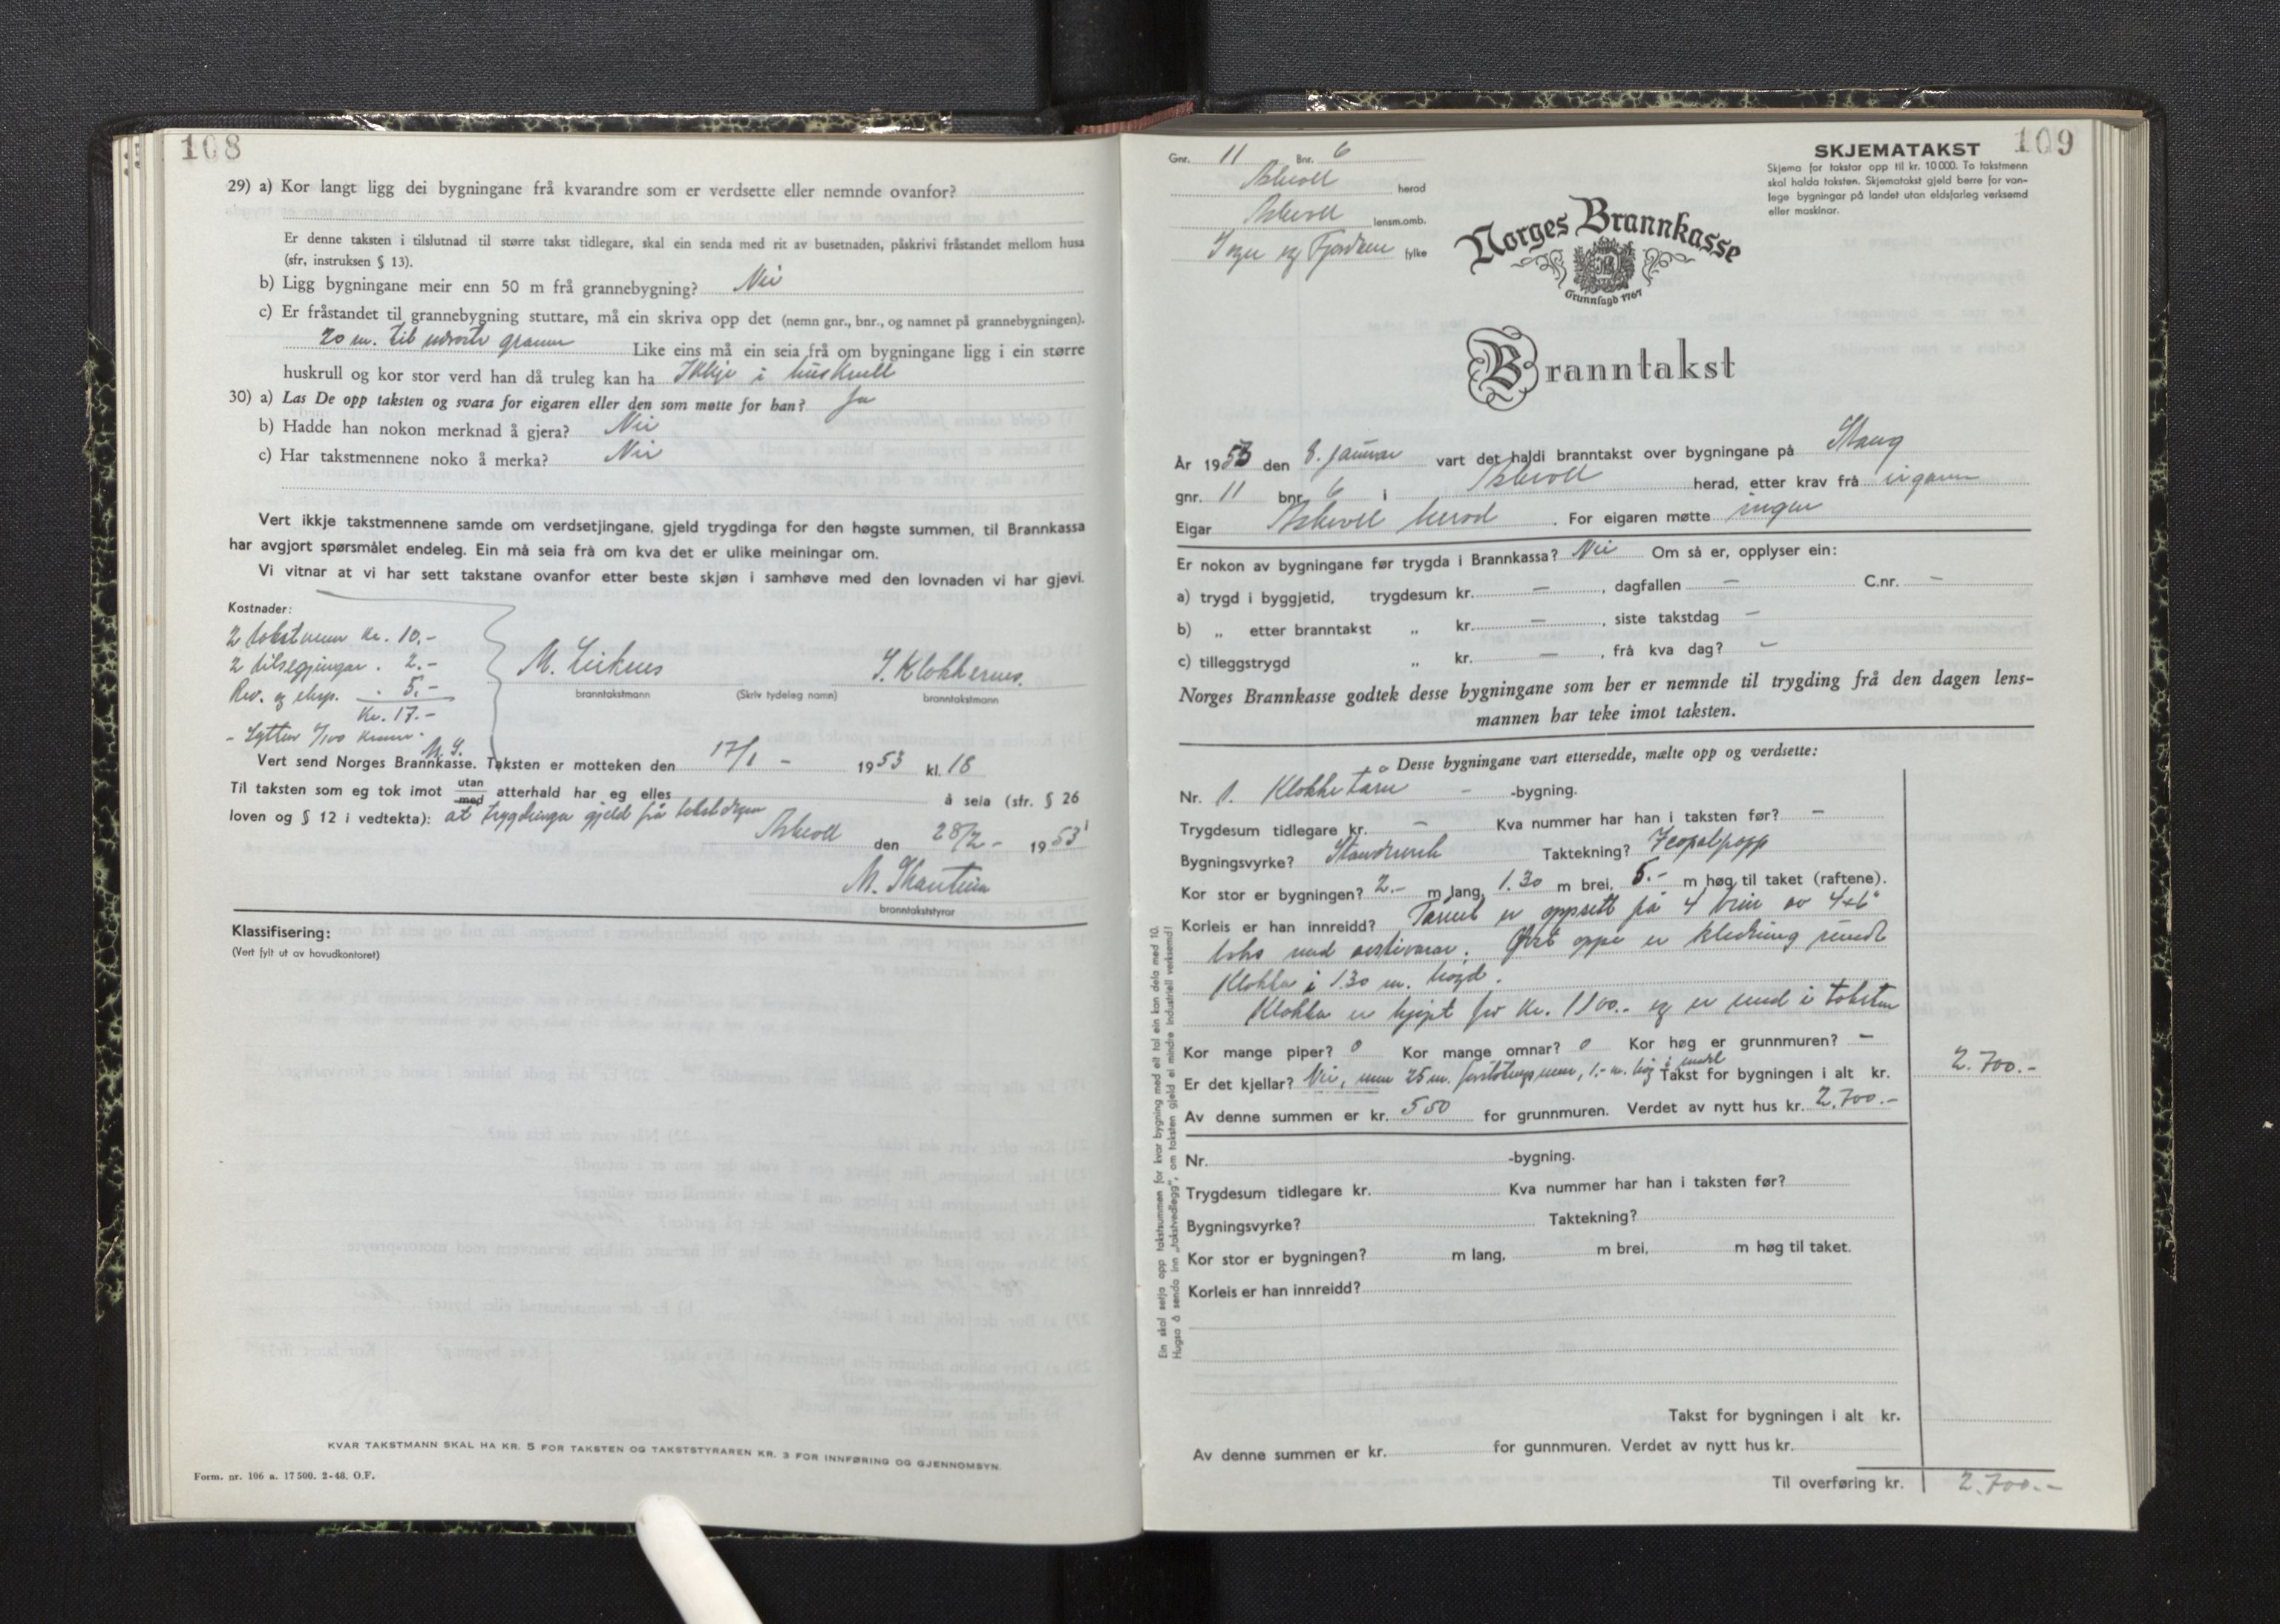 108
29) a) Kor langt ligg dei bygningane frå kvarandre som er verdsette eller nemnde ovanfor?
Er denne taksten i tilslutnad til større takst tidlegare, skal ein senda med rit av busetnaden, påskrivi fråstandet mellom husa
(sfr, instruksen § 13).
b) Ligg bygningane meir enn 50 m frå grannebygning? Nei
c) Er fråstandet til grannebygning stuttare, må ein skriva opp det (nemn gnr., bnr., og namnet på grannebygningen).
20 m. til næraste granne Like eins må ein seia frå om bygningane ligg i ein større
huskrull og kor stor verd han då truleg kan ha Ikkje i huskrull
30) a) Las De opp taksten og svara for eigaren eller den som møtte for han? Ja
b) Hadde han nokon merknad å gjera? Nei
c) Har takstmennene noko å merka? Nei
Vert ikkje takstmennene samde om verdsetjingane, gjeld trygdinga for den høgste summen, til Brannkassa
har avgjort spørsmålet endeleg. Ein må seia frå om kva det er ulike meiningar om.
Vi vitnar at vi har sett takstane ovanfor etter beste skjøn i samhøve med den lovnaden vi har gjevi.
Kostnader:
2 takstmenn kr. 10.-
2 tilsegjingar . 2.-
Rev. og eksp. . 5.-
Kr. 17.-
M. Leiknes S. Klokkernes.
branntakstmann (Skriv tydeleg namn) branntakstmann
M. S.
Vert send Norges Brannkasse. Taksten er motteken den 17/1 - 1953 kl. 18
Til taksten som eg tok imot utan med atterhald har eg elles å seia (sfr. § 26
loven og § 12 i vedtekta): at trygdinga gjeld frå takstdagen
Askvoll den 28/2 - 1953
M. Skantun
branntakststyrar
Klassifisering:
(Vert fylt ut av hovudkontoret)
KVAR TAKSTMANN SKAL HA KR. 5 FOR TAKSTEN OG TAKSTSTYRAREN KR. 3 FOR INNFØRING OG GJENNOMSYN.
Form. nr. 106 a. 17 500. 2-48. O.F.
109
SKJEMATAKST
Skjema for takstar opp til kr. 10 000. To takstmenn
skal halda taksten. Skjematakst gjeld berre for van-
lege bygningar på landet utan eldsfarleg verksemd
eller maskinar.
Gnr. 11 Bnr. 6
Askvoll herad
Askvoll lensm.omb.
Sogn og Fjordane fylke
Norges Brannkasse
Grunnlagd 1767
Branntakst
År 1953 den 8. januar vart det haldi branntakst over bygningane på Staug
gnr. 11 bnr. 6 i Askvoll herad, etter krav frå eigaren
Eigar Askvoll herad . For eigaren møtte ingen
Er nokon av bygningane før trygda i Brannkassa? Nei Om så er, opplyser ein:
a) trygd i byggjetid, trygdesum kr. — , dagfallen — C.nr. –
b) „ etter branntakst „ kr. — , siste takstdag –
c) tilleggstrygd „ kr. — , frå kva dag? –
Norges Brannkasse godtek desse bygningane som her er nemnde til trygding frå den dagen lens-
mannen har teke imot taksten.
Desse bygningane vart ettersedde, mælte opp og verdsette:
Nr. 1. Klokketårn - -bygning.
Trygdesum tidlegare kr. – Kva nummer har han i taksten før? –
Bygningsvyrke? Standverk Taktekning? Jeopalpapp
Kor stor er bygningen? 2.- m lang, 1.30 m brei, 5.- m høg til taket (raftene).
Korleis er han innreidd? Tårnet er oppsett på 4 bein av 4×6"
Øvst oppe er kledning rundt
Klokka i 1.30 m. høgd.
Klokka er kjøpt for kr. 1100.- og er med i taksten
Kor mange piper? 0 Kor mange omnar? 0 Kor høg er grunnmuren? –
Er det kjellar? Nei, men 25 m. forstøtningsmur, 1.- m. høg i medel Takst for bygningen i alt kr. 2.700.-
Av denne summen er kr. 550 for grunnmuren. Verdet av nytt hus kr. 2.700.-
Nr. -bygning.
Trygdesum tidlegare kr. Kva nummer har han i taksten før?
Bygningsvyrke? Taktekning?
Kor stor er bygningen? m lang, m brei, m høg til taket.
Korleis er han innreidd?
Takst for bygningen i alt kr.
Av denne summen er kr. for gunnmuren. Verdet av nytt hus kr.
Til overføring kr. 2.700.-
Ein skal setja opp takstsummen for kvar bygning med eit tal ein kan dela med 10.
Hugsa å senda inn „takstvedlegg", om taksten gjeld ei mindre industriell verksemd!